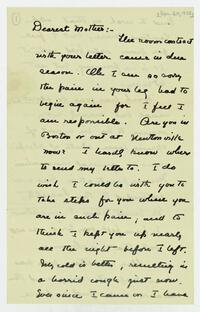 1
Dearest Mother:-
The room contract
with your letter came in due
season. Oh I am so sorry
the pain in your leg had to
begin again for I feel I
am responsible. Are you in
Boston or out at Newtonville
now? I hardly know where
to send my letters. I do
wish I could be with you to
take steps for you when you
are in such pain, and to
think I kept you up nearly
all the night before I left.
My cold is better, resulting in
a horrid cough just now.
Ever since I came on I have